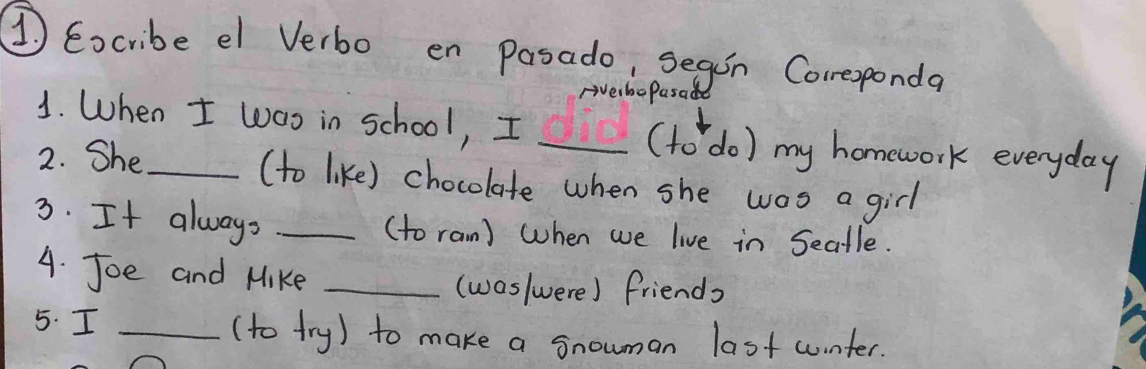 1. Escribe el Verbo en Pasado, según Corresponda
→verbo Pasado
1. When I was in school, I did (to do) my homework everyday
2. She____ (to like) chocolate when she was a girl
3. It always ____ (to rain) when we live in Seatle.
4. Joe and Mike ____ (was/were) friends
5. I ____ (to try) to make a snowman last winter.